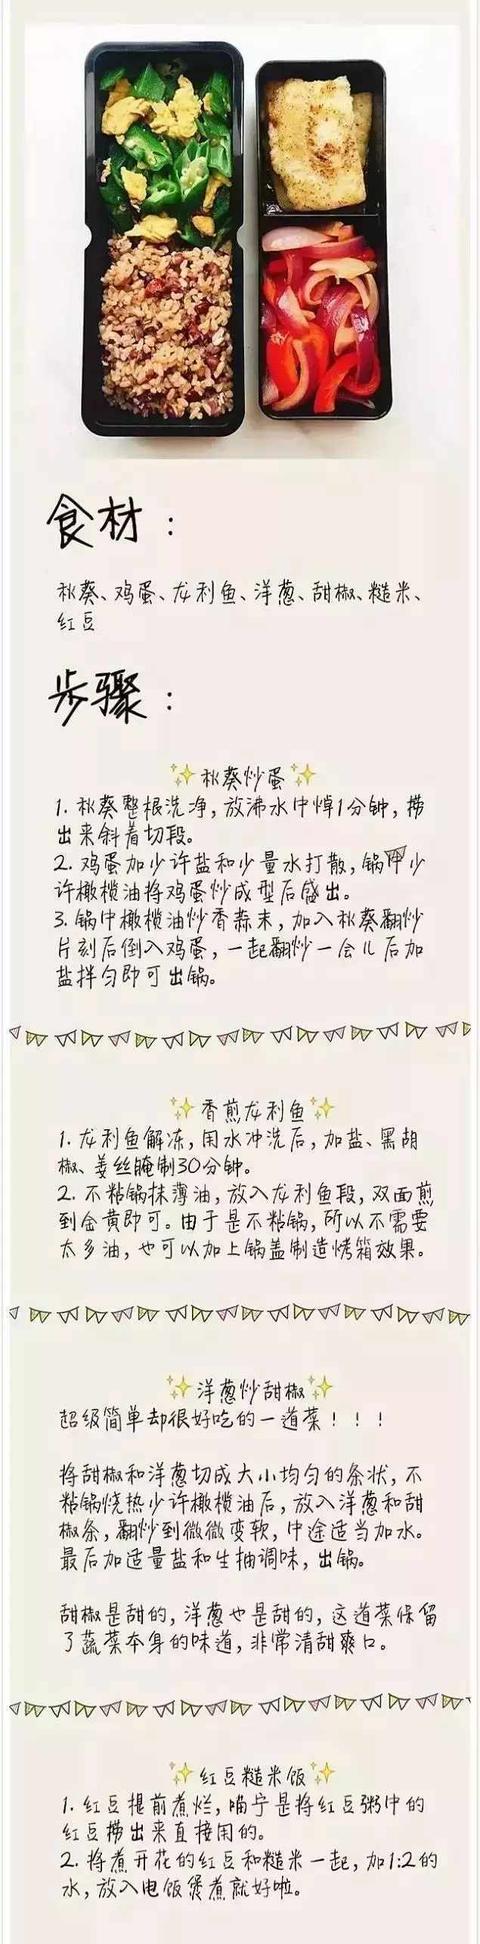 食材：
秋葵、鸡蛋、龙利鱼、洋葱、甜椒、糙米、
红豆
步骤：
秋葵炒蛋
1. 秋葵整根洗净，放沸水中焯1分钟，捞
出来斜着切段。
2. 鸡蛋加少许盐和少量水打散，锅中少
许橄榄油将鸡蛋炒成型后盛出。
3. 锅中橄榄油炒香蒜末，加入秋葵翻炒
片刻后倒入鸡蛋，一起翻炒一会儿后加
盐拌匀即可出锅。
香煎龙利鱼
1. 龙利鱼解冻，用水冲洗后，加盐、黑胡
椒、姜丝腌制30分钟。
2. 不粘锅抹薄油，放入龙利鱼段，双面煎
到金黄即可。由于是不粘锅，所以不需要
太多油，也可以加上锅盖制造烤箱效果。
洋葱炒甜椒
超级简单却很好吃的一道菜！！！
将甜椒和洋葱切成大小均匀的条状，不
粘锅烧热少许橄榄油后，放入洋葱和甜
椒条，翻炒到微微变软，中途适当加水。
最后加适量盐和生抽调味，出锅。
甜椒是甜的，洋葱也是甜的，这道菜保留
了蔬菜本身的味道，非常清甜爽口。
红豆糙米饭
1. 红豆提前煮烂，喵宁是将红豆粥中的
红豆捞出来直接用的。
2. 将煮开花的红豆和糙米一起，加1:2的
水，放入电饭煲煮就好啦。